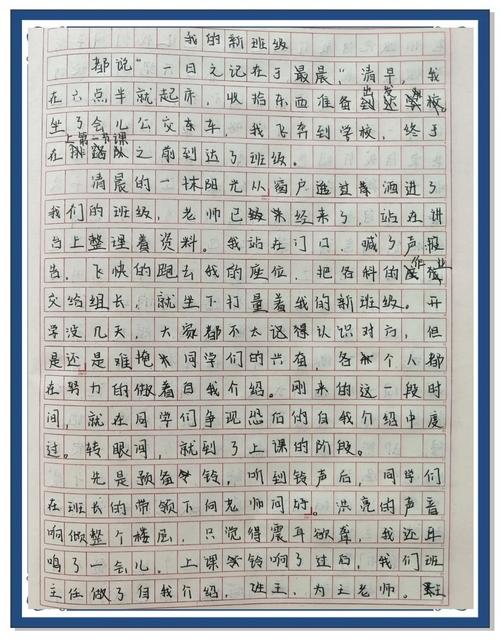 我的新班级
都说“一日之记在于最晨”，清早，我
在六点半就起床，收拾东西准备出发学校。
坐了会儿公交车，我飞奔到学校，终于
在上第一节课之前到达了班级。
清晨的一抹阳光从窗户透过洒进了
我们的班级，老师已经来了，站在讲
台上整理着资料。我站在门口，喊了声报
告。飞快的跑去我的座位，把各科的作业
交给组长，就坐下打量着我的新班级。开
学没几天，大家都不太记得认识对方，但
是还是难掩同学们的兴奋，各个人都
在努力的做着自我介绍。刚来的这一段时
间，就在同学们争现恐后的自我介绍中度
过。转眼间，就到了上课的阶段。
先是预备铃，听到铃声后，同学们
在班长的带领下向老师问好。洪亮的声音
响彻整个楼层，只觉得震耳欲聋，我还耳
鸣了一会儿。上课铃响了过后，我们班
主任做了自我介绍，班主，为王老师。